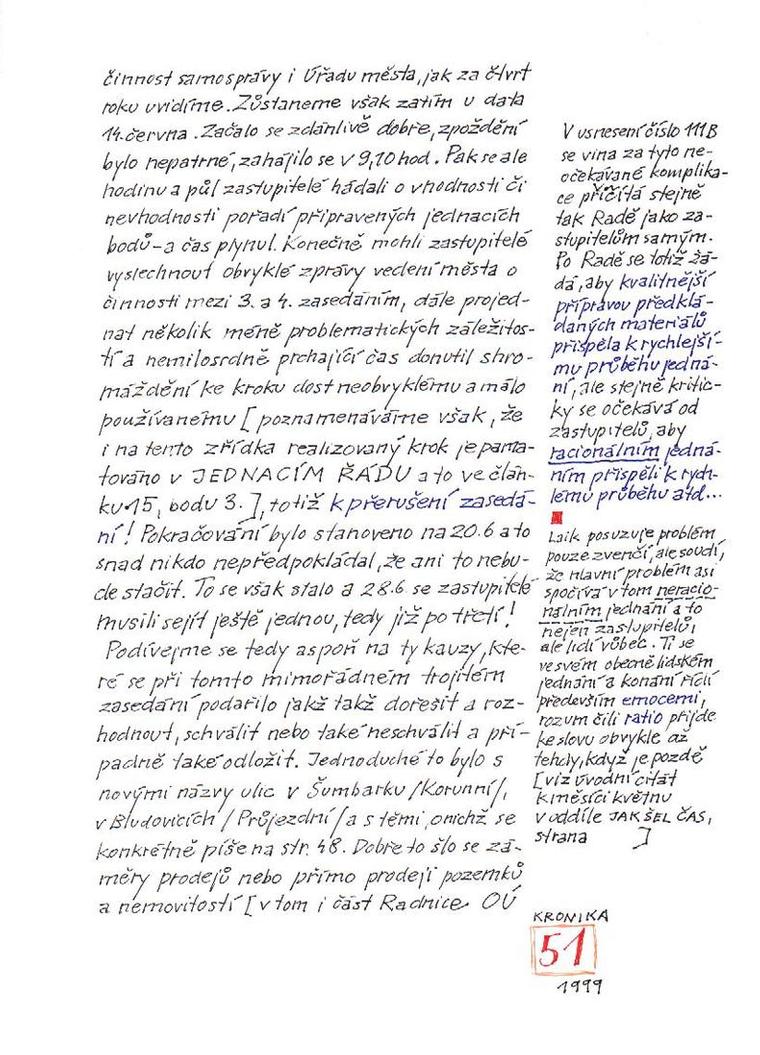 činnost samosprávy i Úřadu města, jak za čtvrt
roku uvidíme. Zůstaneme však zatím u data
14. června. Začalo se zdánlivě dobře, zpoždění
bylo nepatrné, zahájilo se v 9,10 hod. Pak se ale
hodinu a půl zastupitelé hádali o vhodnosti či
nevhodnosti pořadí připravených jednacích
bodů - a čas plynul. Konečně mohli zastupitelé
vyslechnout obvyklé zprávy vedení města o
činnosti mezi 3. a 4. zasedáním, dále projed-
nat několik méně problematických záležitos-
tí a nemilosrdně prchající čas donutil shro-
máždění ke kroku dost neobvyklému a málo
používanému [poznamenáváme však, že
i na tento zřídka realizovaný krok je pama-
továno v JEDNACÍM ŘÁDU a to ve člán-
ku 15, bodu 3.], totiž k přerušení zasedá-
ní! Pokračování bylo stanoveno na 20.6 a to
snad nikdo nepředpokládal, že ani to nebu-
de stačit. To se však stalo a 28.6 se zastupitelé
musili sejít ještě jednou, tedy již po třetí!
Podívejme se tedy aspoň na ty kauzy, kte-
ré se při tomto mimořádném trojitém
zasedání podařilo jakž takž dořešit a roz-
hodnout, schválit nebo také neschválit a pří-
padně také odložit. Jednoduché to bylo s
novými názvy ulic v Šumbarku /Korunní/,
v Bludovicích /Průjezdní/ a s těmi, o nichž se
konkrétně píše na str. 48. Dobře to šlo se zá-
měry prodejů nebo přímo prodeji pozemků
a nemovitostí [v tom i část Radnice OÚ
V usnesení číslo 111B
se vina za tyto ne-
očekávané komplika-
ce přičítá stejně
tak Radě jako za-
stupitelům samým.
Po Radě se totiž žá-
dá, aby kvalitnější
přípravou předklá-
daných materiálů
přispěla k rychlejší-
mu průběhu jedná-
ní, ale stejně kritic-
ky se očekává od
zastupitelů, aby
racionálním jedná-
ním přispěli k rych-
lému průběhu atd...
Laik posuzuje problém
pouze zvenčí, ale soudí,
že hlavní problém asi
spočívá v tom neracio-
nálním jednání a to
nejen zastupitelů,
ale lidí vůbec. Ti se
ve svém obecně lidském
jednání a konání řídí
především emocemi,
rozum čili ratio přijde
ke slovu obvykle až
tehdy, když je pozdě
[viz úvodní citát
k měsíci květnu
v oddíle JAK ŠEL ČAS,
strana ]
KRONIKA
51
1999